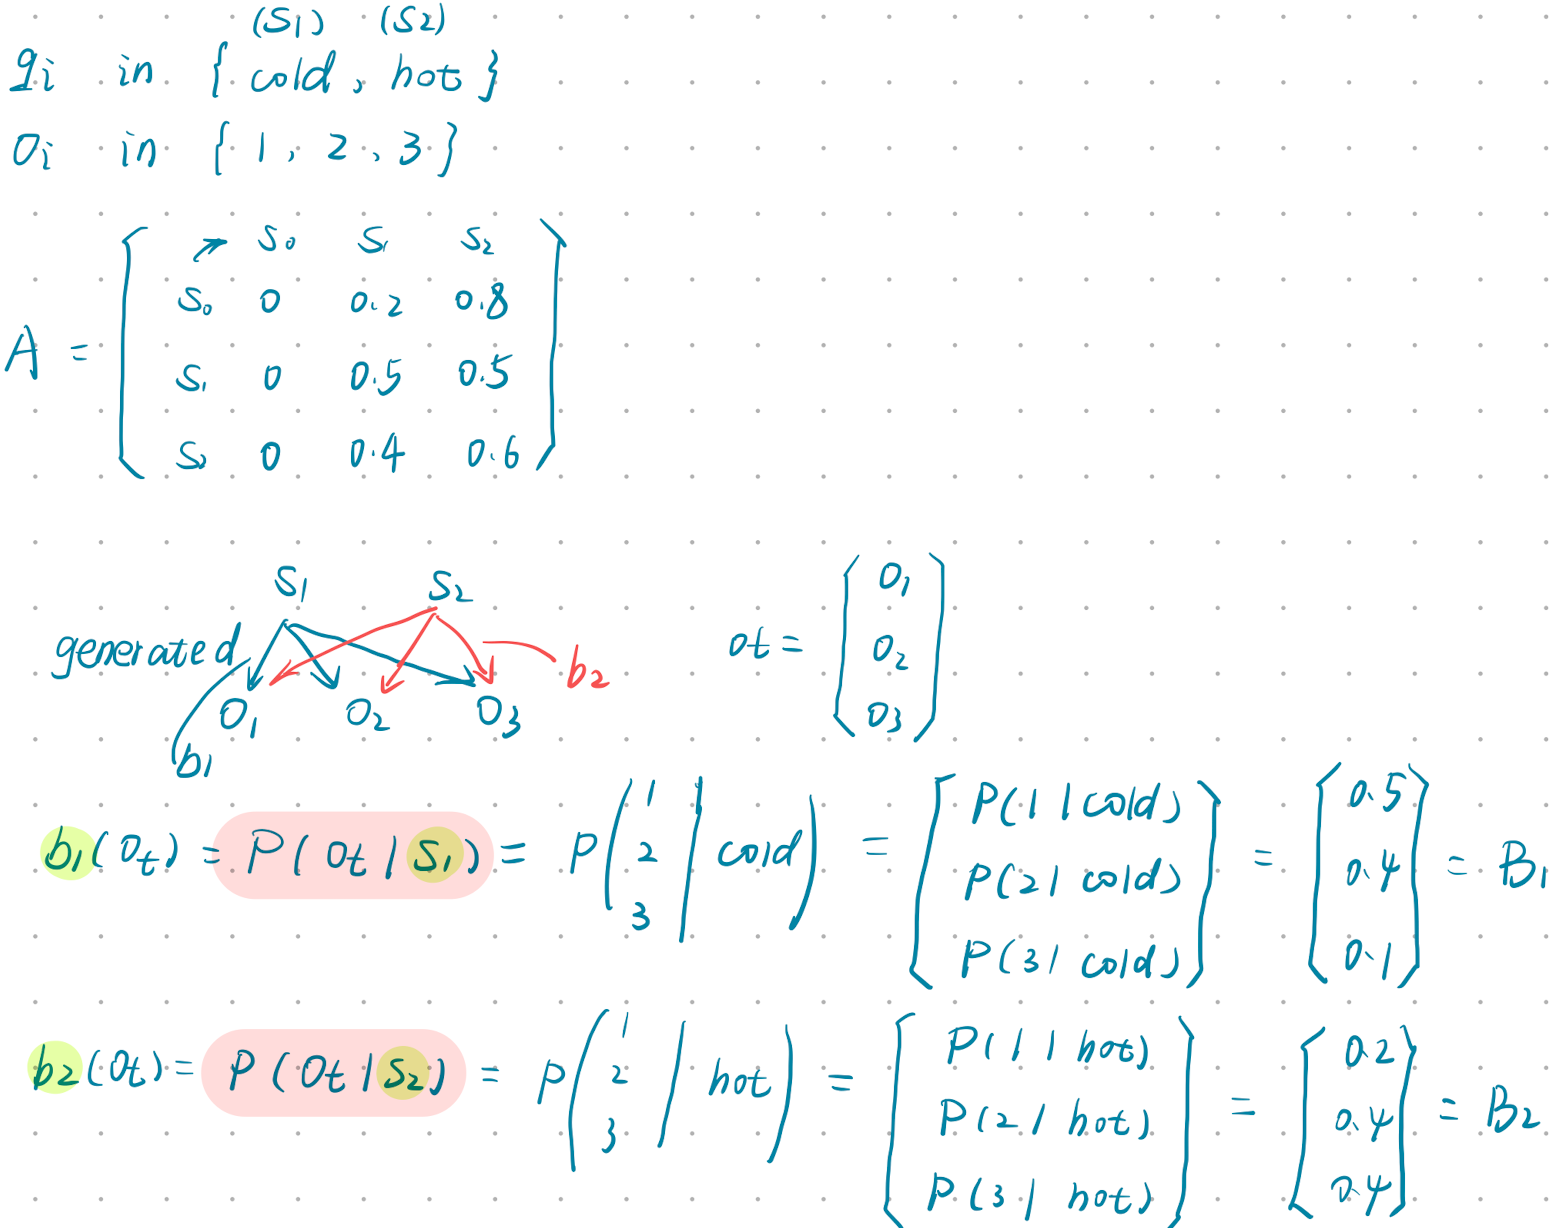 (S1) (S2)
qi in { cold, hot }
Oi in { 1, 2, 3 }
↗ S0 S1 S2
S0 0 0.2 0.8
A =
S1 0 0.5 0.5
S2 0 0.4 0.6
S1 S2
generated
b2
O1 O2 O3
b1
ot = [ O1
O2
O3 ]
b1(Ot) = P(Ot | S1) = P( 1 2 3 | cold ) = [ P(1 | cold) P(2 | cold) P(3 | cold) ] = [ 0.5 0.4 0.1 ] = B1
b2(Ot) = P(Ot | S2) = P( 1 2 3 | hot ) = [ P(1 | hot) P(2 | hot) P(3 | hot) ] = [ 0.2 0.4 0.4 ] = B2